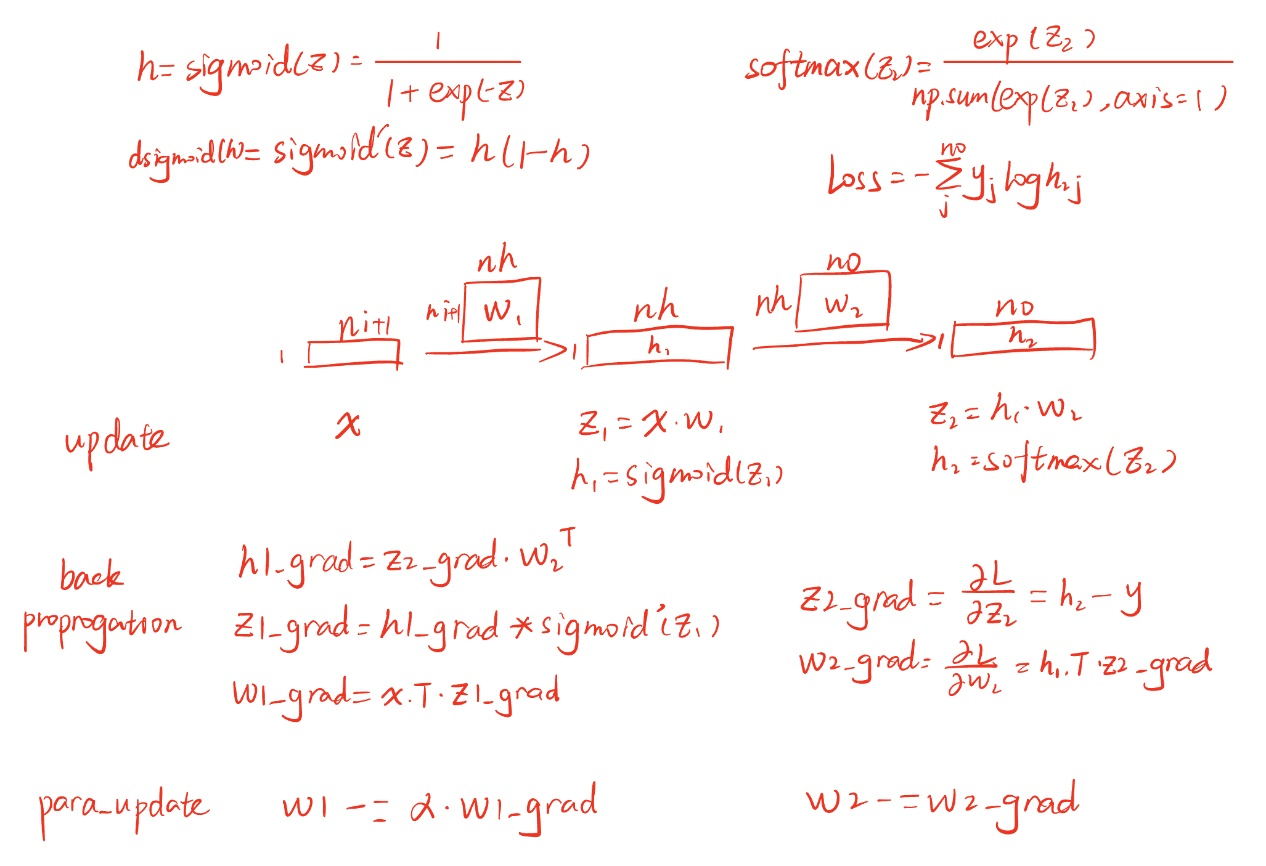 h = sigmoid(z) = 1 / (1 + exp(-z))
dsigmoid(h) = sigmoid'(z) = h(1-h)
softmax(z₂) = exp(z₂) / np.sum(exp(z₂), axis=1)
Loss = -∑ⱼⁿᵒ yⱼ log h₂ⱼ
nh
no
ni+1
ni+1
W₁
nh
nh
W₂
no
1
1
h₁
1
h₂
update
x
z₁ = x·w₁
h₁ = sigmoid(z₁)
z₂ = h₁·w₂
h₂ = softmax(z₂)
back
proprogation
h1_grad = z2_grad · w₂ᵀ
z1_grad = h1_grad * sigmoid'(z₁)
w1_grad = x.T · z1_grad
z2_grad = ∂L/∂z₂ = h₂ - y
w2_grad = ∂L/∂w₂ = h₁.T · z2_grad
para_update
w1 -= α · w1_grad
w2 -= w2_grad